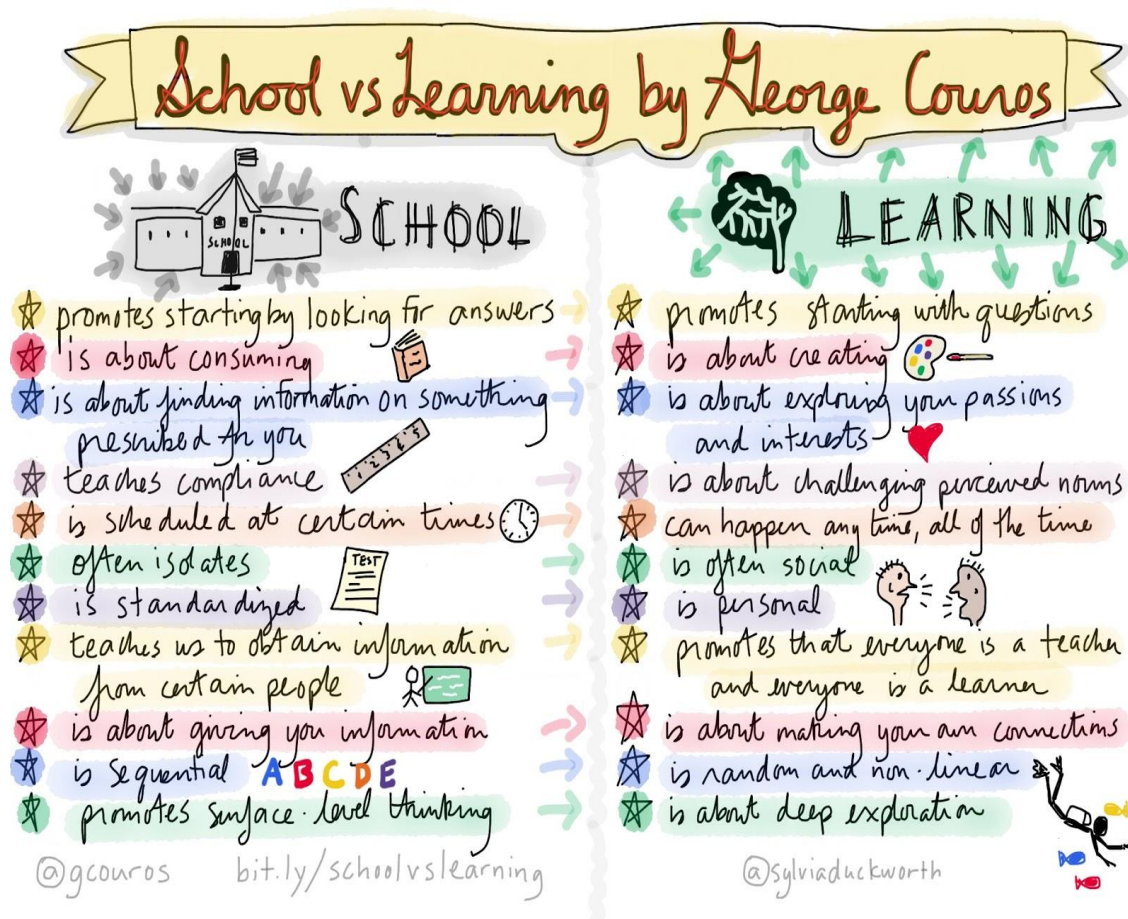 School vs Learning by George Couros
SCHOOL
SCHOOL
promotes starting by looking for answers
is about consuming
is about finding information on something
prescribed for you
1 2 3 4 5
teaches compliance
is scheduled at certain times
often isolates
TEST
is standardized
teaches us to obtain information
from certain people
is about giving you information
is sequential A B C D E
promotes surface-level thinking
@gcouros bit.ly/schoolvslearning
LEARNING
promotes starting with questions
is about creating
is about exploring your passions
and interests
is about challenging perceived norms
can happen any time, all of the time
is often social
is personal
promotes that everyone is a teacher
and everyone is a learner
is about making your own connections
is random and non-linear
is about deep exploration
@sylviaduckworth